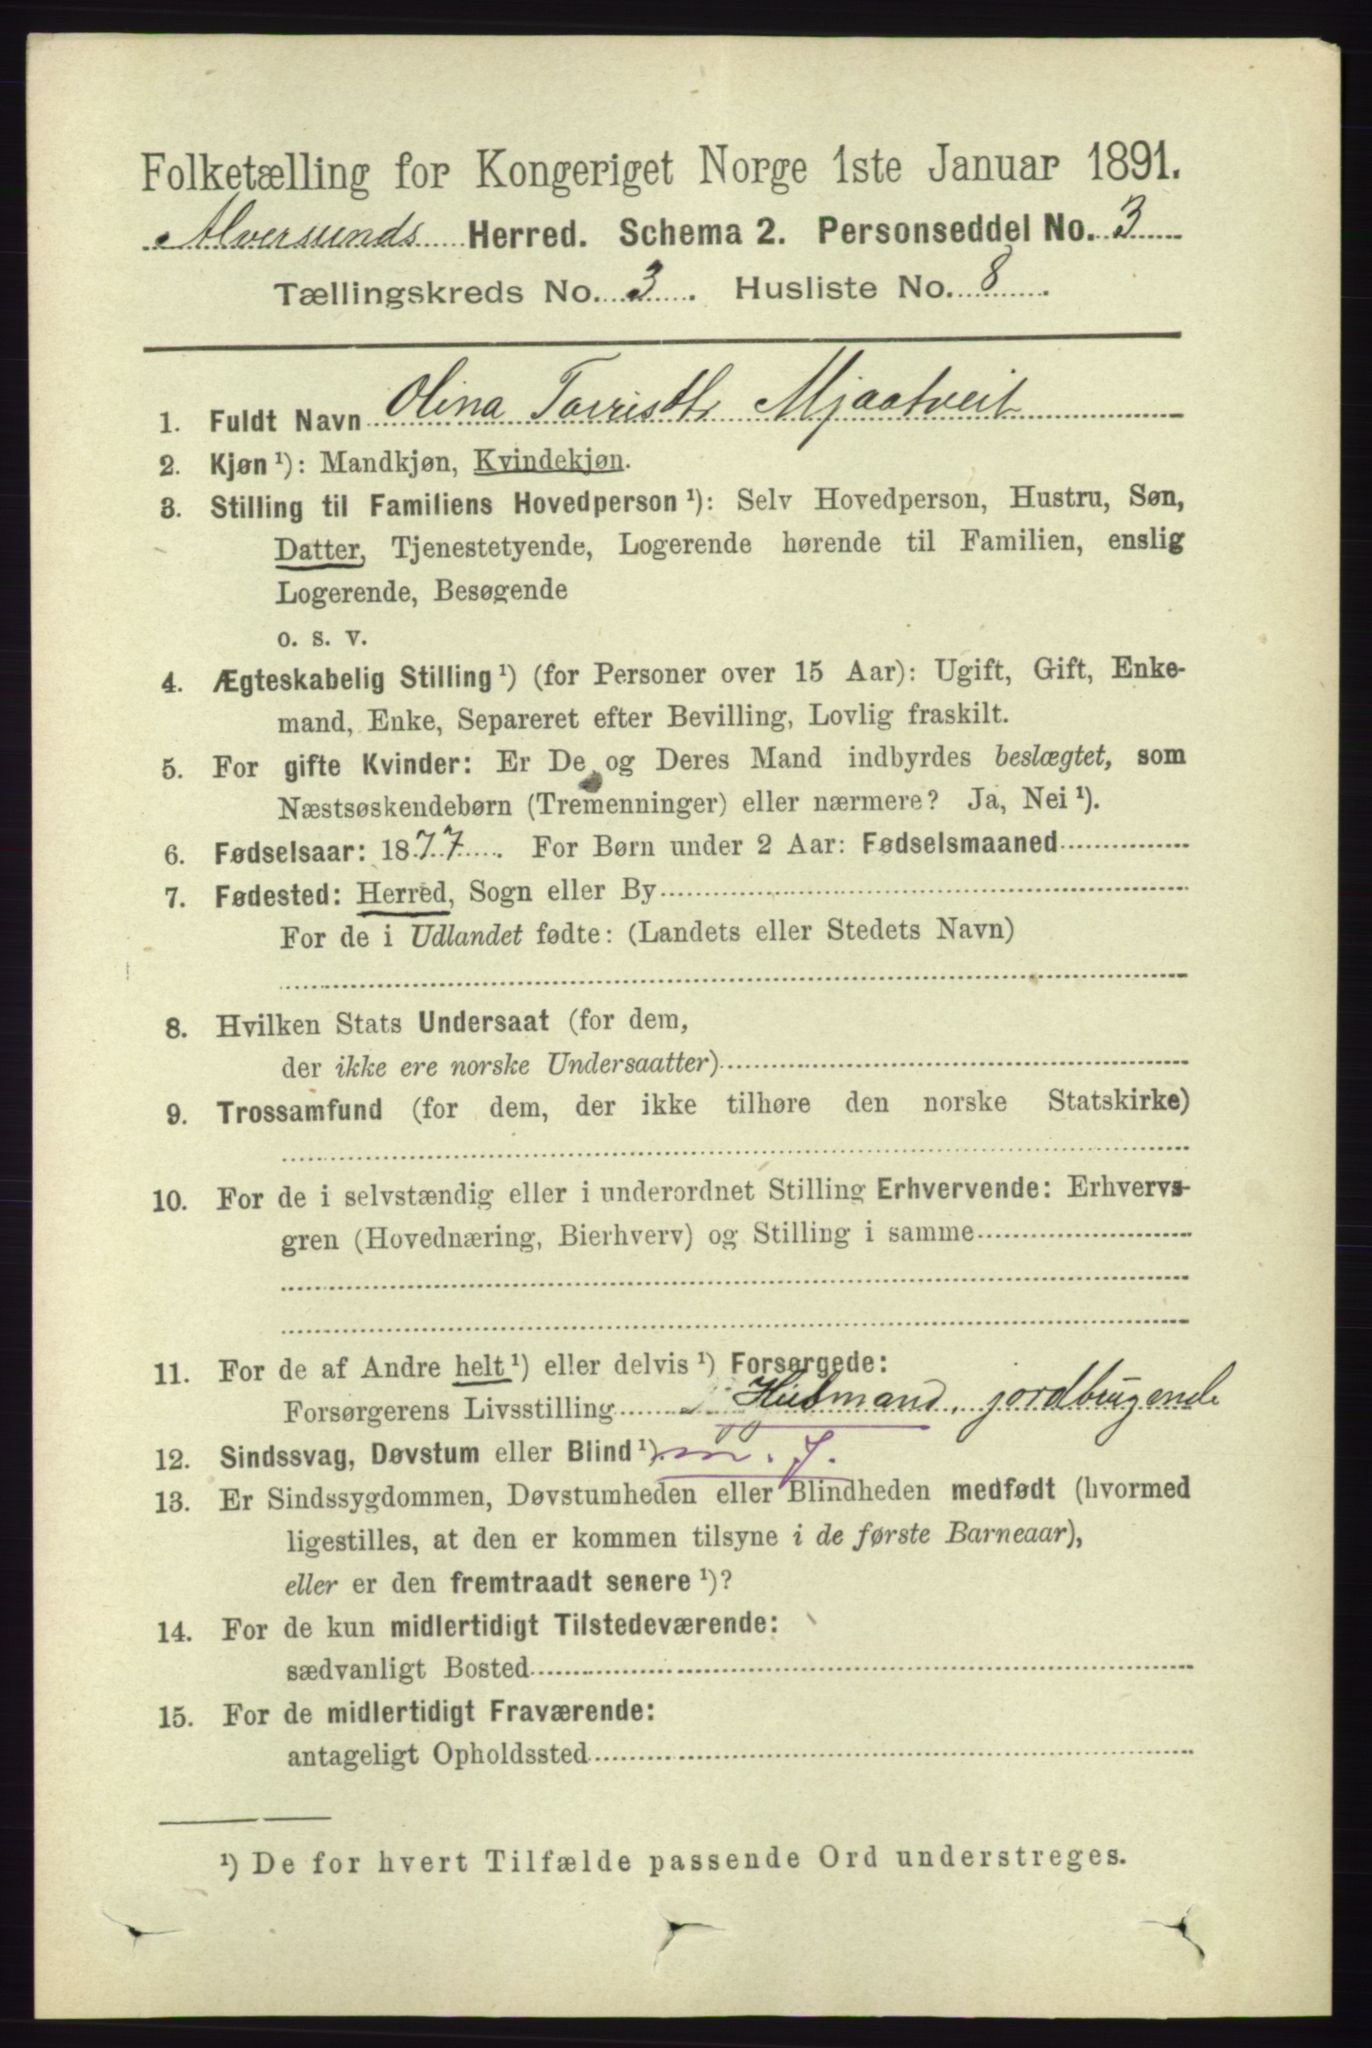 Folketælling for Kongeriget Norge 1ste Januar 1891.
Alversunds Herred. Schema 2. Personseddel No. 3
Tællingskreds No. 3. Husliste No. 8.
1. Fuldt Navn Olina Torrisdtr Mjaatveit
2. Kjøn ¹): Mandkjøn, Kvindekjøn.
3. Stilling til Familiens Hovedperson ¹): Selv Hovedperson, Hustru, Søn,
Datter, Tjenestetyende, Logerende hørende til Familien, enslig
Logerende, Besøgende
o. s. v.
4. Ægteskabelig Stilling ¹) (for Personer over 15 Aar): Ugift, Gift, Enke-
mand, Enke, Separeret efter Bevilling, Lovlig fraskilt.
5. For gifte Kvinder: Er De og Deres Mand indbyrdes beslægtet, som
Næstsøskendebørn (Tremenninger) eller nærmere? Ja, Nei ¹).
6. Fødselsaar: 1877. For Børn under 2 Aar: Fødselsmaaned
7. Fødested: Herred, Sogn eller By
For de i Udlandet fødte: (Landets eller Stedets Navn)
8. Hvilken Stats Undersaat (for dem,
der ikke ere norske Undersaatter)
9. Trossamfund (for dem, der ikke tilhøre den norske Statskirke)
10. For de i selvstændig eller i underordnet Stilling Erhvervende: Erhvervs-
gren (Hovednæring, Bierhverv) og Stilling i samme
11. For de af Andre helt ¹) eller delvis ¹) Forsørgede:
Forsørgerens Livsstilling Husmand, jordbrugende
12. Sindssvag, Døvstum eller Blind ¹). m. J.
13. Er Sindssygdommen, Døvstumheden eller Blindheden medfødt (hvormed
ligestilles, at den er kommen tilsyne i de første Barneaar),
eller er den fremtraadt senere ¹)?
14. For de kun midlertidigt Tilstedeværende:
sædvanligt Bosted
15. For de midlertidigt Fraværende:
antageligt Opholdssted
¹) De for hvert Tilfælde passende Ord understreges.